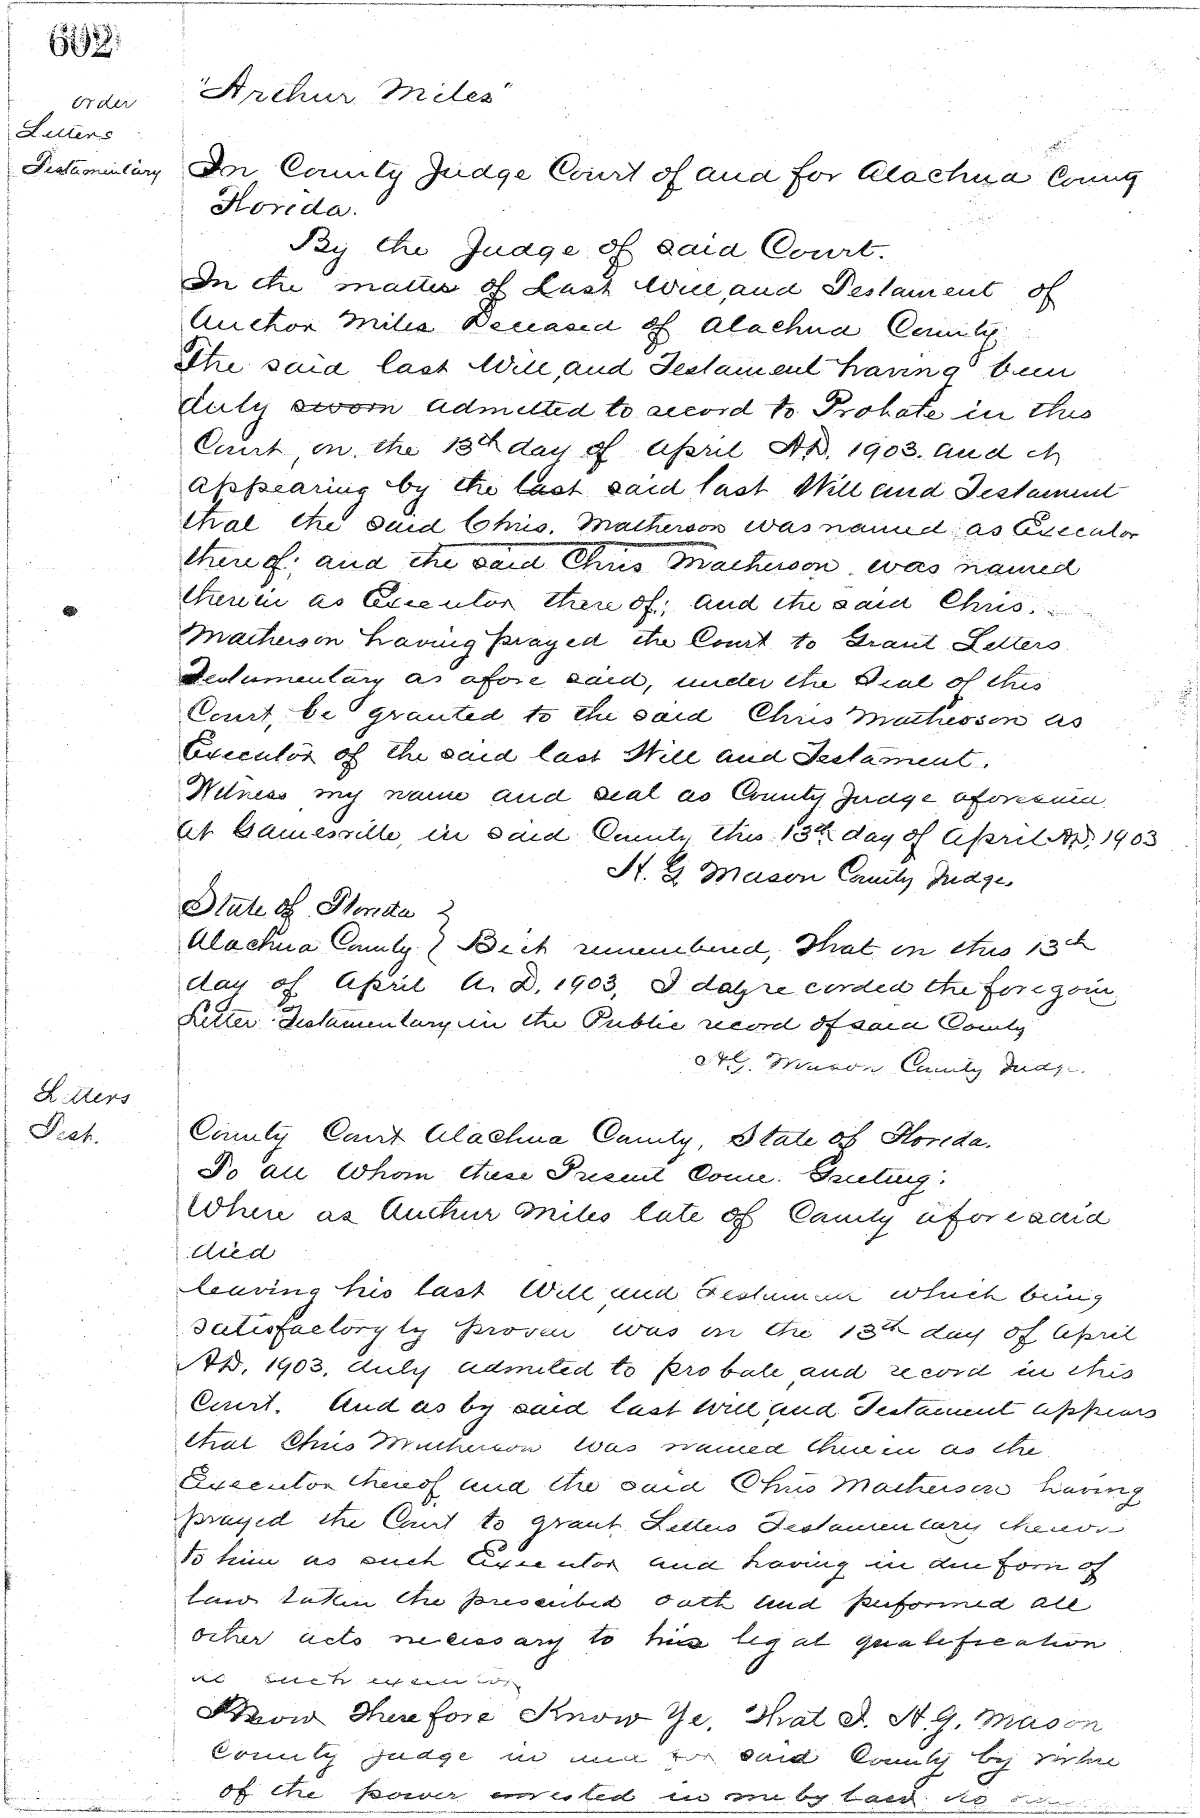 602
order
Letters
Testamentary
"Arthur Miles"
In County Judge Court of and for Alachua County
Florida.
By the Judge of said Court.
In the matter of Last Will, and Testament of
Aucthor Miles Deceased of Alachua County
The said last Will, and Testament having been
duly sworn admitted to record to Probate in this
Court, on the 13th day of April A.D. 1903. and it
appearing by the last said last Will and Testament
that the said Chris. Matherson was named as Executor
thereof; and the said Chris Matherson was named
therein as Executor there of; and the said Chris.
Matherson having prayed the Court to Grant Letters
Testamentary as afore said, under the Seal of this
Court, be granted to the said Chris Matherson as
Executor of the said last Will and Testament.
Witness my name and seal as County Judge aforesaid
at Gainesville, in said County this 13th day of April A.D. 1903
H. G Mason County Judge.
State of Florida }
Alachua County } Be it remembered, That on this 13th
day of April A. D. 1903, I day recorded the foregoin
Letter Testamentary in the Public record of said County
H.G. Mason County Judge.
Letters
Test.
County Court Alachua County, State of Florida.
To all Whom these Present Come. Greeting:
Where as Aucthur Miles late of County afore said
died
leaving his last Will, and Testament which being
satisfactoryly proven was on the 13th day of April
A.D. 1903, duly admited to probate, and record in this
Court. And as by said last Will, and Testament appears
that Chris Matherson was named therein as the
Executor thereof and the said Chris Matherson having
prayed the Court to grant Letters Testamentary thereon
to him as such Executor and having in due form of
law taken the prescribed oath and performed all
other acts necessary to his legal qualification
as such executor
Know Therefore Know Ye, That I. H.G. Mason
County Judge in and for said County by virtue
of the power invested in me by law do